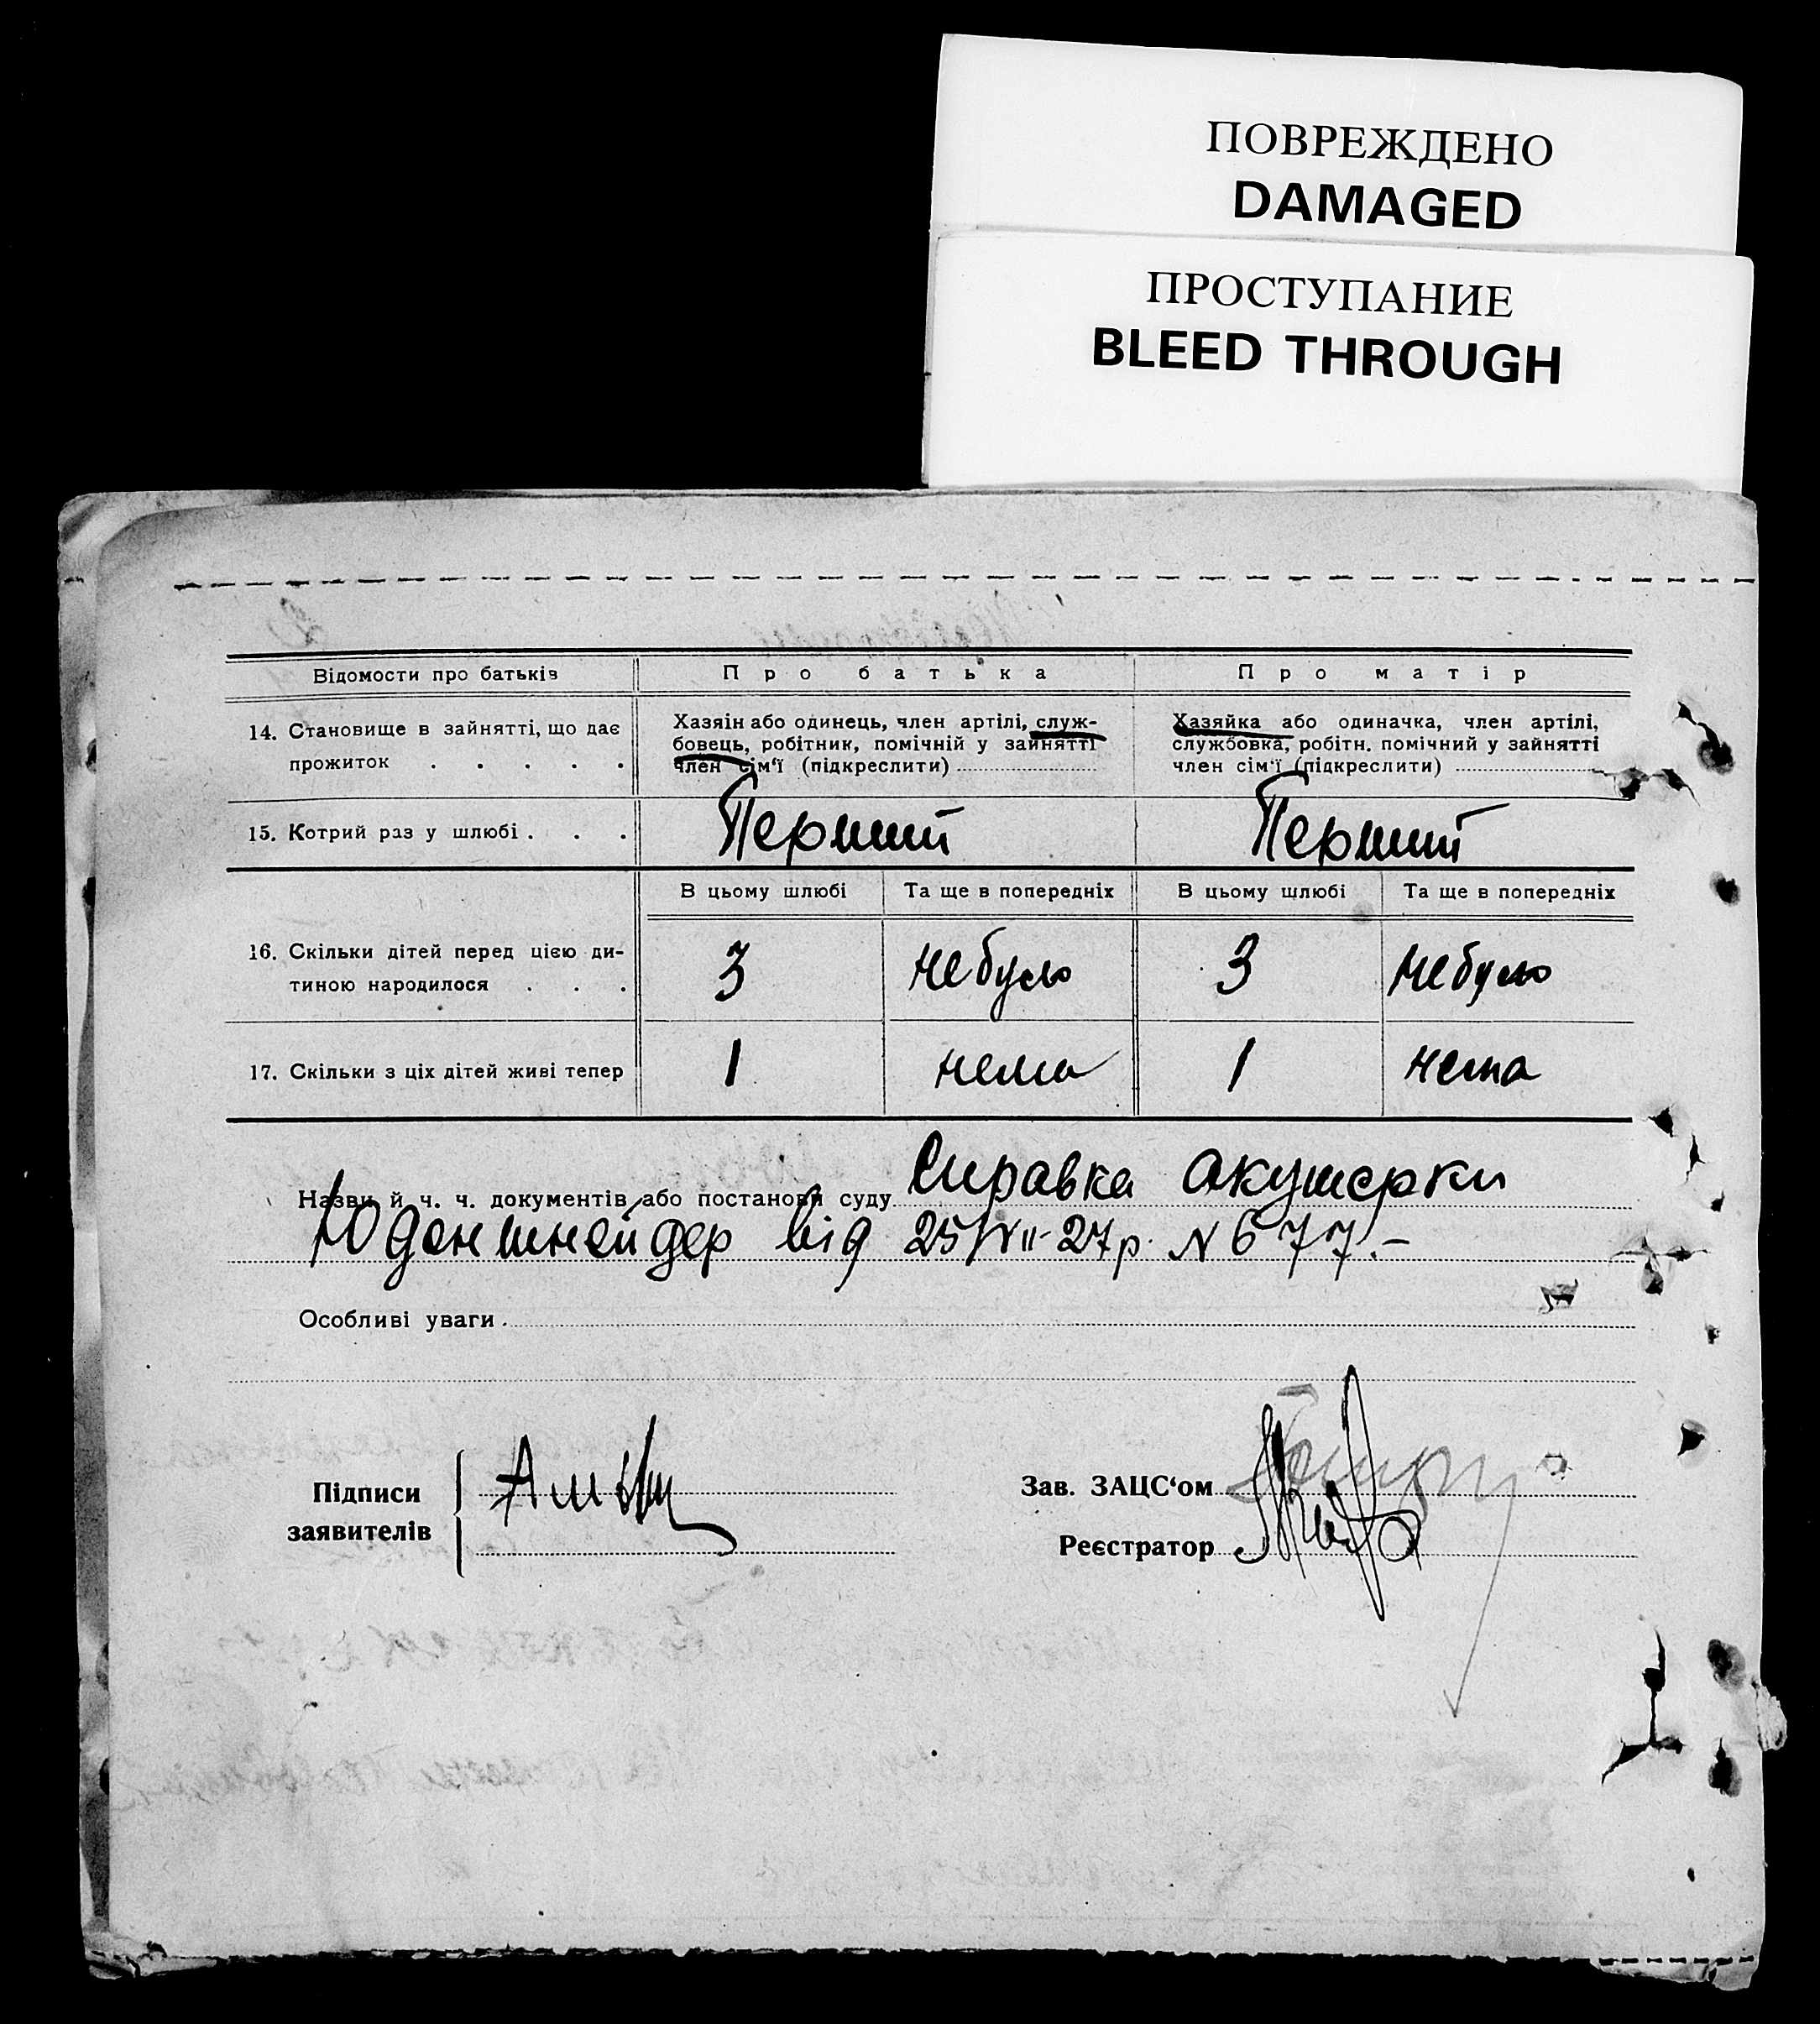 ПОВРЕЖДЕНО
DAMAGED
ПРОСТУПАНИЕ
BLEED THROUGH
Відомости про батьків Про батька Про матір
14. Становище в зайнятті, що дає
прожиток . . . . .
Хазяін або одинець, член артілі, служ-
бовець, робітник, помічній у зайнятті
член сім'ї (підкреслити)
Хазяйка або одиначка, член артілі,
службовка, робітн. помічний у зайнятті
член сім'ї (підкреслити)
15. Котрий раз у шлюбі . . . Перший Перший
В цьому шлюбі Та ще в попередніх В цьому шлюбі Та ще в попередніх
16. Скільки дітей перед цією ди-
тиною народилося . . . 3 небуло 3 небуло
17. Скільки з ціх дітей живі тепер 1 нема 1 нема
Назви й ч. ч. документів або постанови суду Справка акушерки
Юденшнейдер від 25/VII-27р. N 677.-
Особливі уваги
Підписи
заявителів
Зав. ЗАЦС'ом
Реєстратор